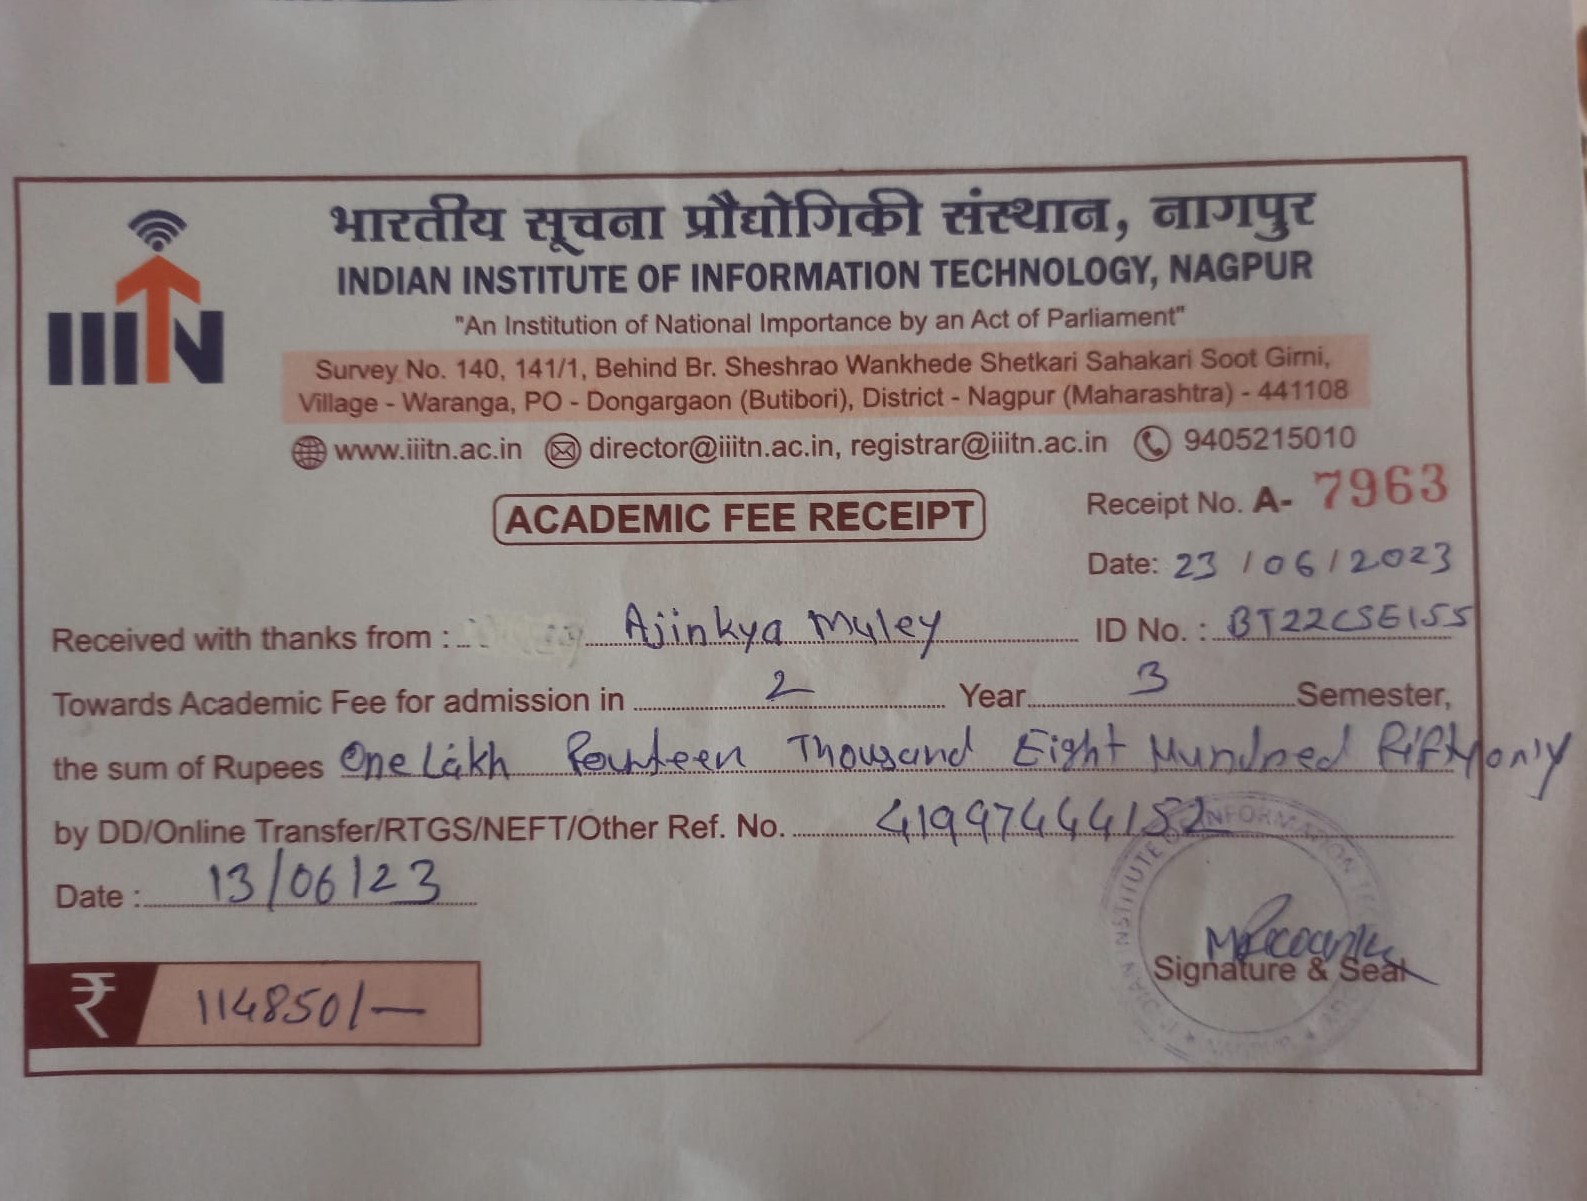 भारतीय सूचना प्रौद्योगिकी संस्थान, नागपुर
IIITN
INDIAN INSTITUTE OF INFORMATION TECHNOLOGY, NAGPUR
"An Institution of National Importance by an Act of Parliament"
Survey No. 140, 141/1, Behind Br. Sheshrao Wankhede Shetkari Sahakari Soot Girni,
Village - Waranga, PO - Dongargaon (Butibori), District - Nagpur (Maharashtra) - 441108
www.iiitn.ac.in director@iiitn.ac.in, registrar@iiitn.ac.in 9405215010
Receipt No. A- 7963
ACADEMIC FEE RECEIPT
Date: 23 / 06 / 2023
Received with thanks from : Ajinkya Muley ID No. : BT22CSE155
Towards Academic Fee for admission in 2 Year 3 Semester,
the sum of Rupees One Lakh Fourteen Thousand Eight Hundred Fifty only
by DD/Online Transfer/RTGS/NEFT/Other Ref. No. 41997444182
Date : 13/06/23
Signature & Seal
₹ 114850/-